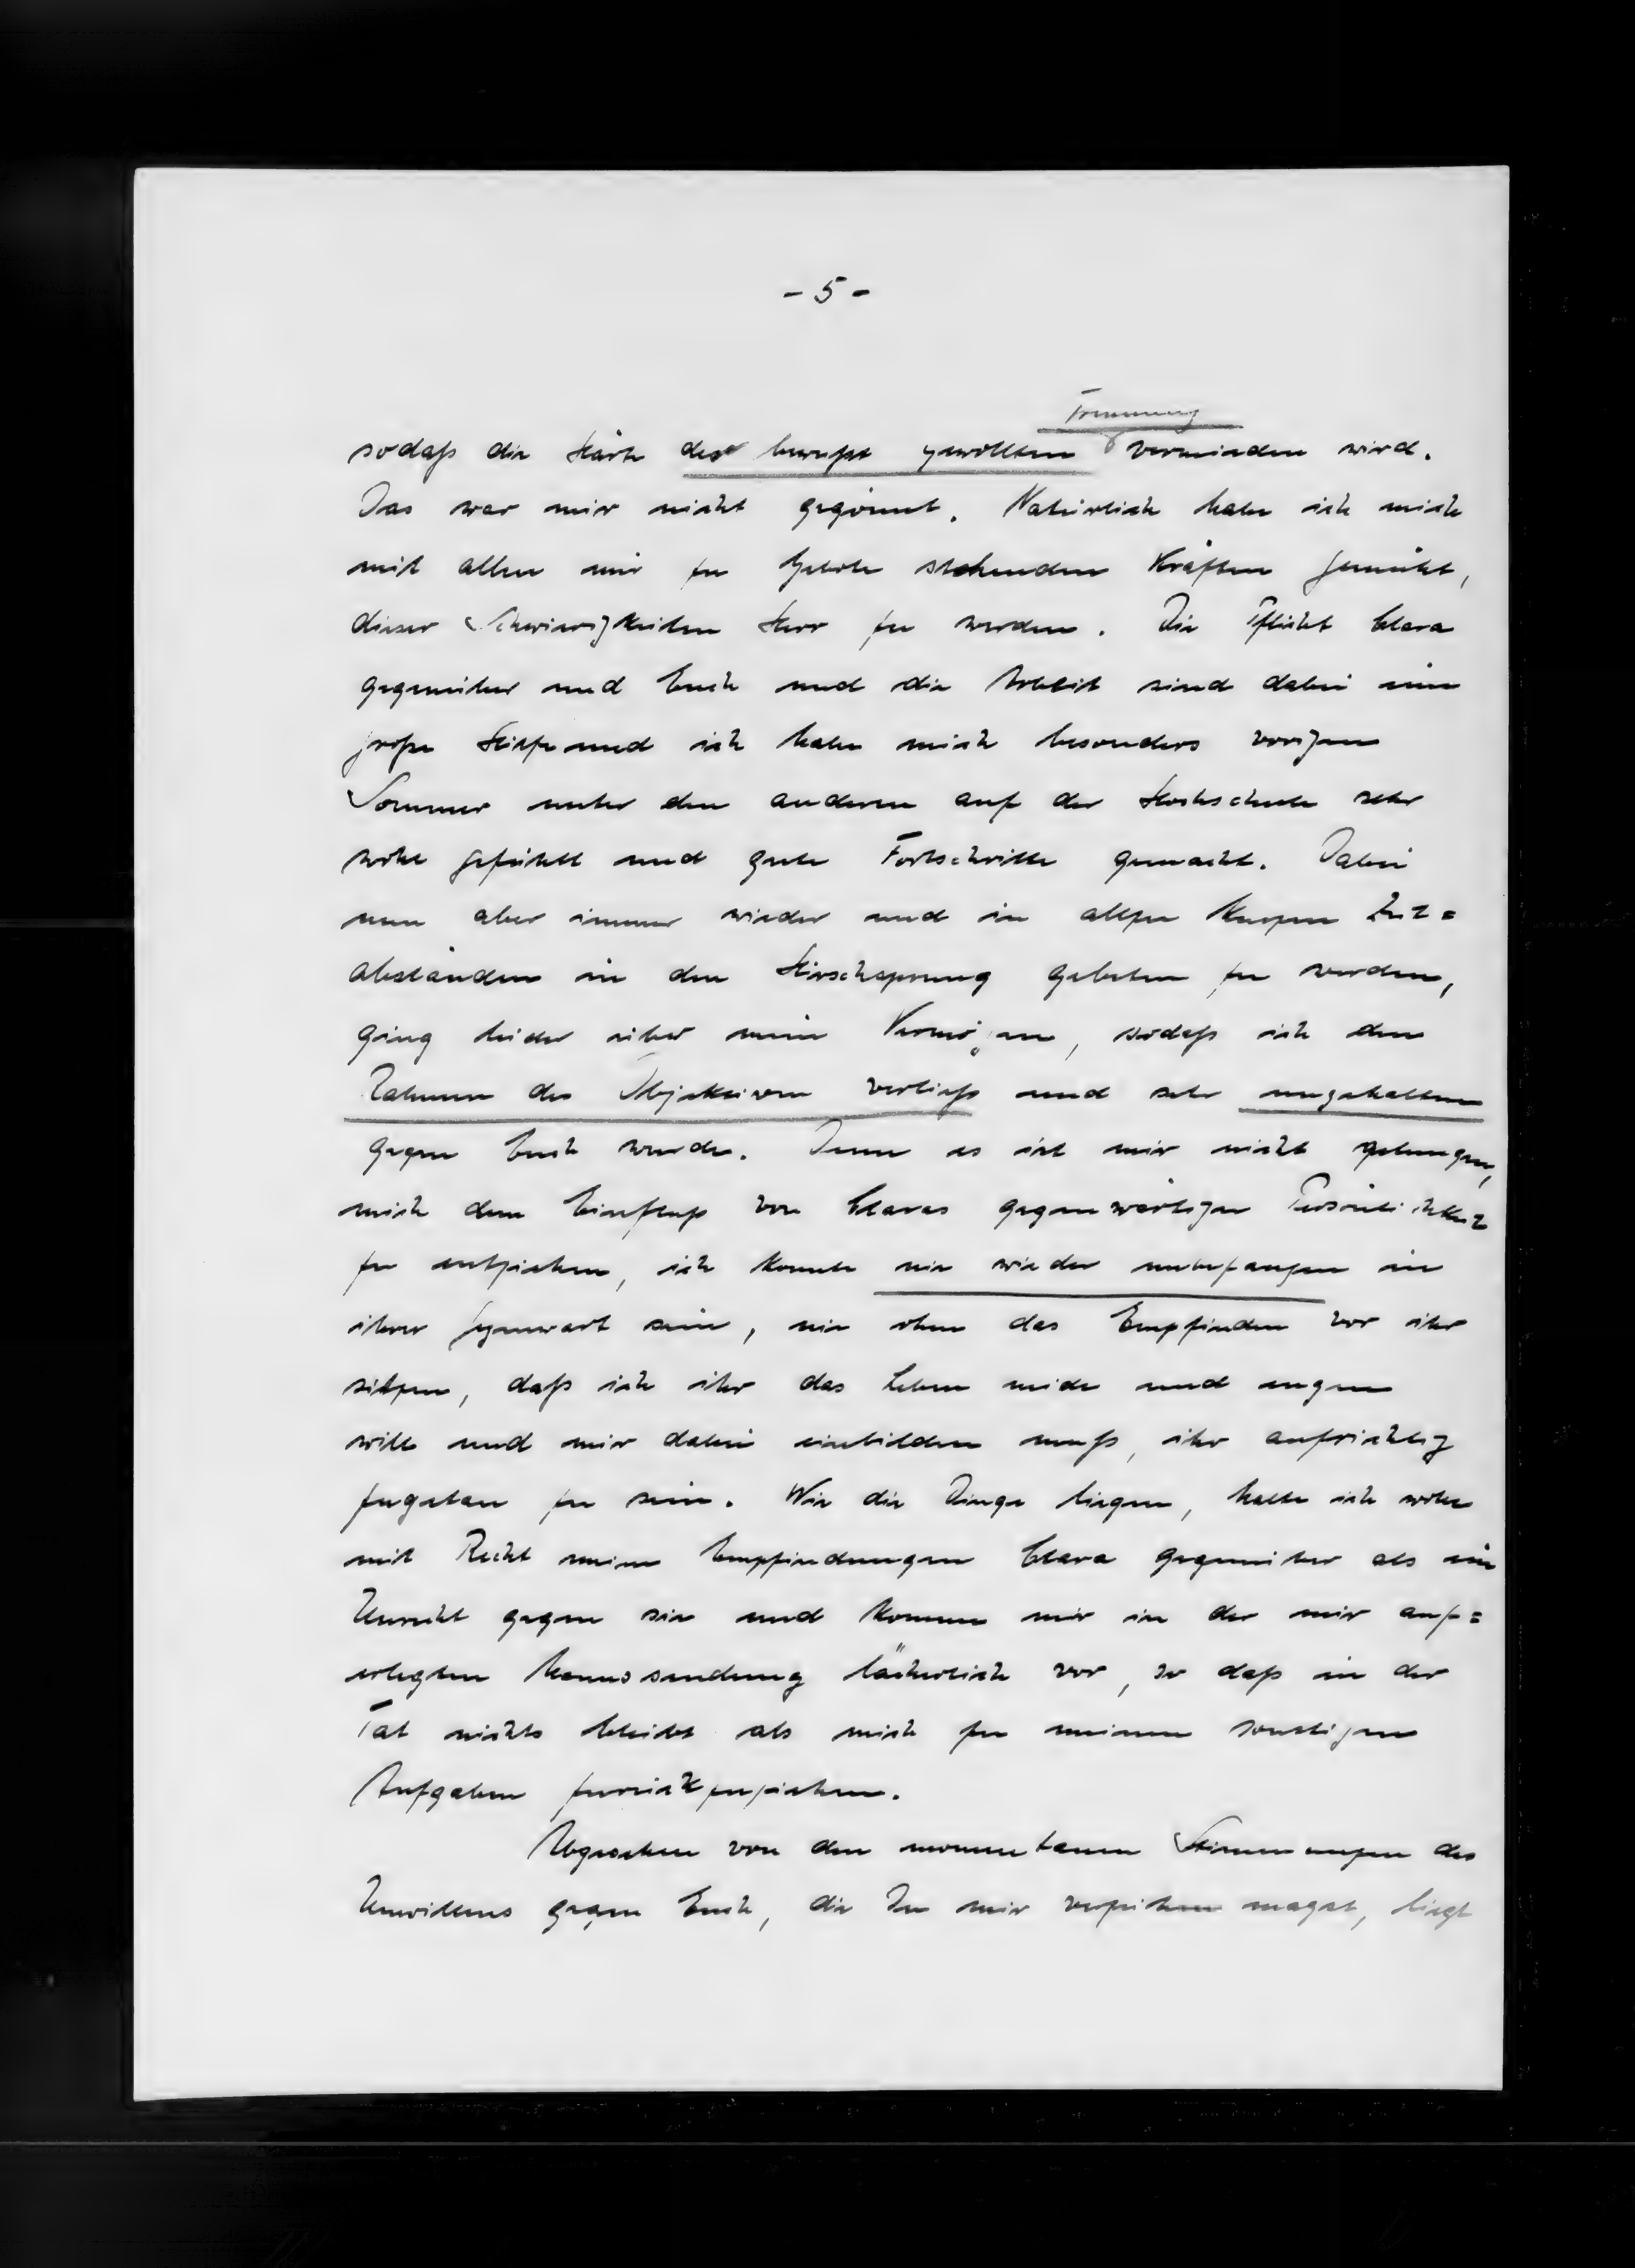 - 5 -
Trennung
sodaß die Härte der bewußt gewollten vermieden wird.
Das war mir nicht gegönnt. Natürlich habe ich mich
mit allen mir zu Gebote stehenden Kräften gemüht,
dieser Schwierigkeiten Herr zu werden. Die Pflicht Clara
gegenüber und Euch und die Arbeit sind dabei eine
große Hilfe und ich habe mich besonders vorigen
Sommer unter den anderen auf der Hochschule sehr
wohl gefühlt und gute Fortschritte gemacht. Dabei
nun aber immer wieder und in allzu kurzen Zeit=
abständen in den Hirschsprung gebeten zu werden,
ging leider über mein Vermögen, sodaß ich den
Rahmen des Objektiven verließ und sehr ungehalten
gegen Euch wurde. Denn es ist mir nicht gelungen,
mich dem Einfluß von Claras gegenwärtiger Persönlichkeit
zu entziehen, ich konnte nie wieder unbefangen in
ihrer Gegenwart sein, nie ohne das Empfinden vor ihr
sitzen, daß ich ihr das Leben neide und
will und mir dabei einbilden muß, ihr aufrichtig
zugetan zu sein. Wie die Dinge liegen, halte ich wohl
mit Recht meine Empfindungen Clara gegenüber als ein
Unrecht gegen sie und komme mir in der mir auf=
erlegten lächerlich vor, so daß in der
Tat nichts bleibt als mich zu meinen sonstigen
Aufgaben zurückzuziehen.
Abgesehen von den momentanen Stimmungen des
Unwillens gegen Euch, die Du mir verzeihen magst, liegt